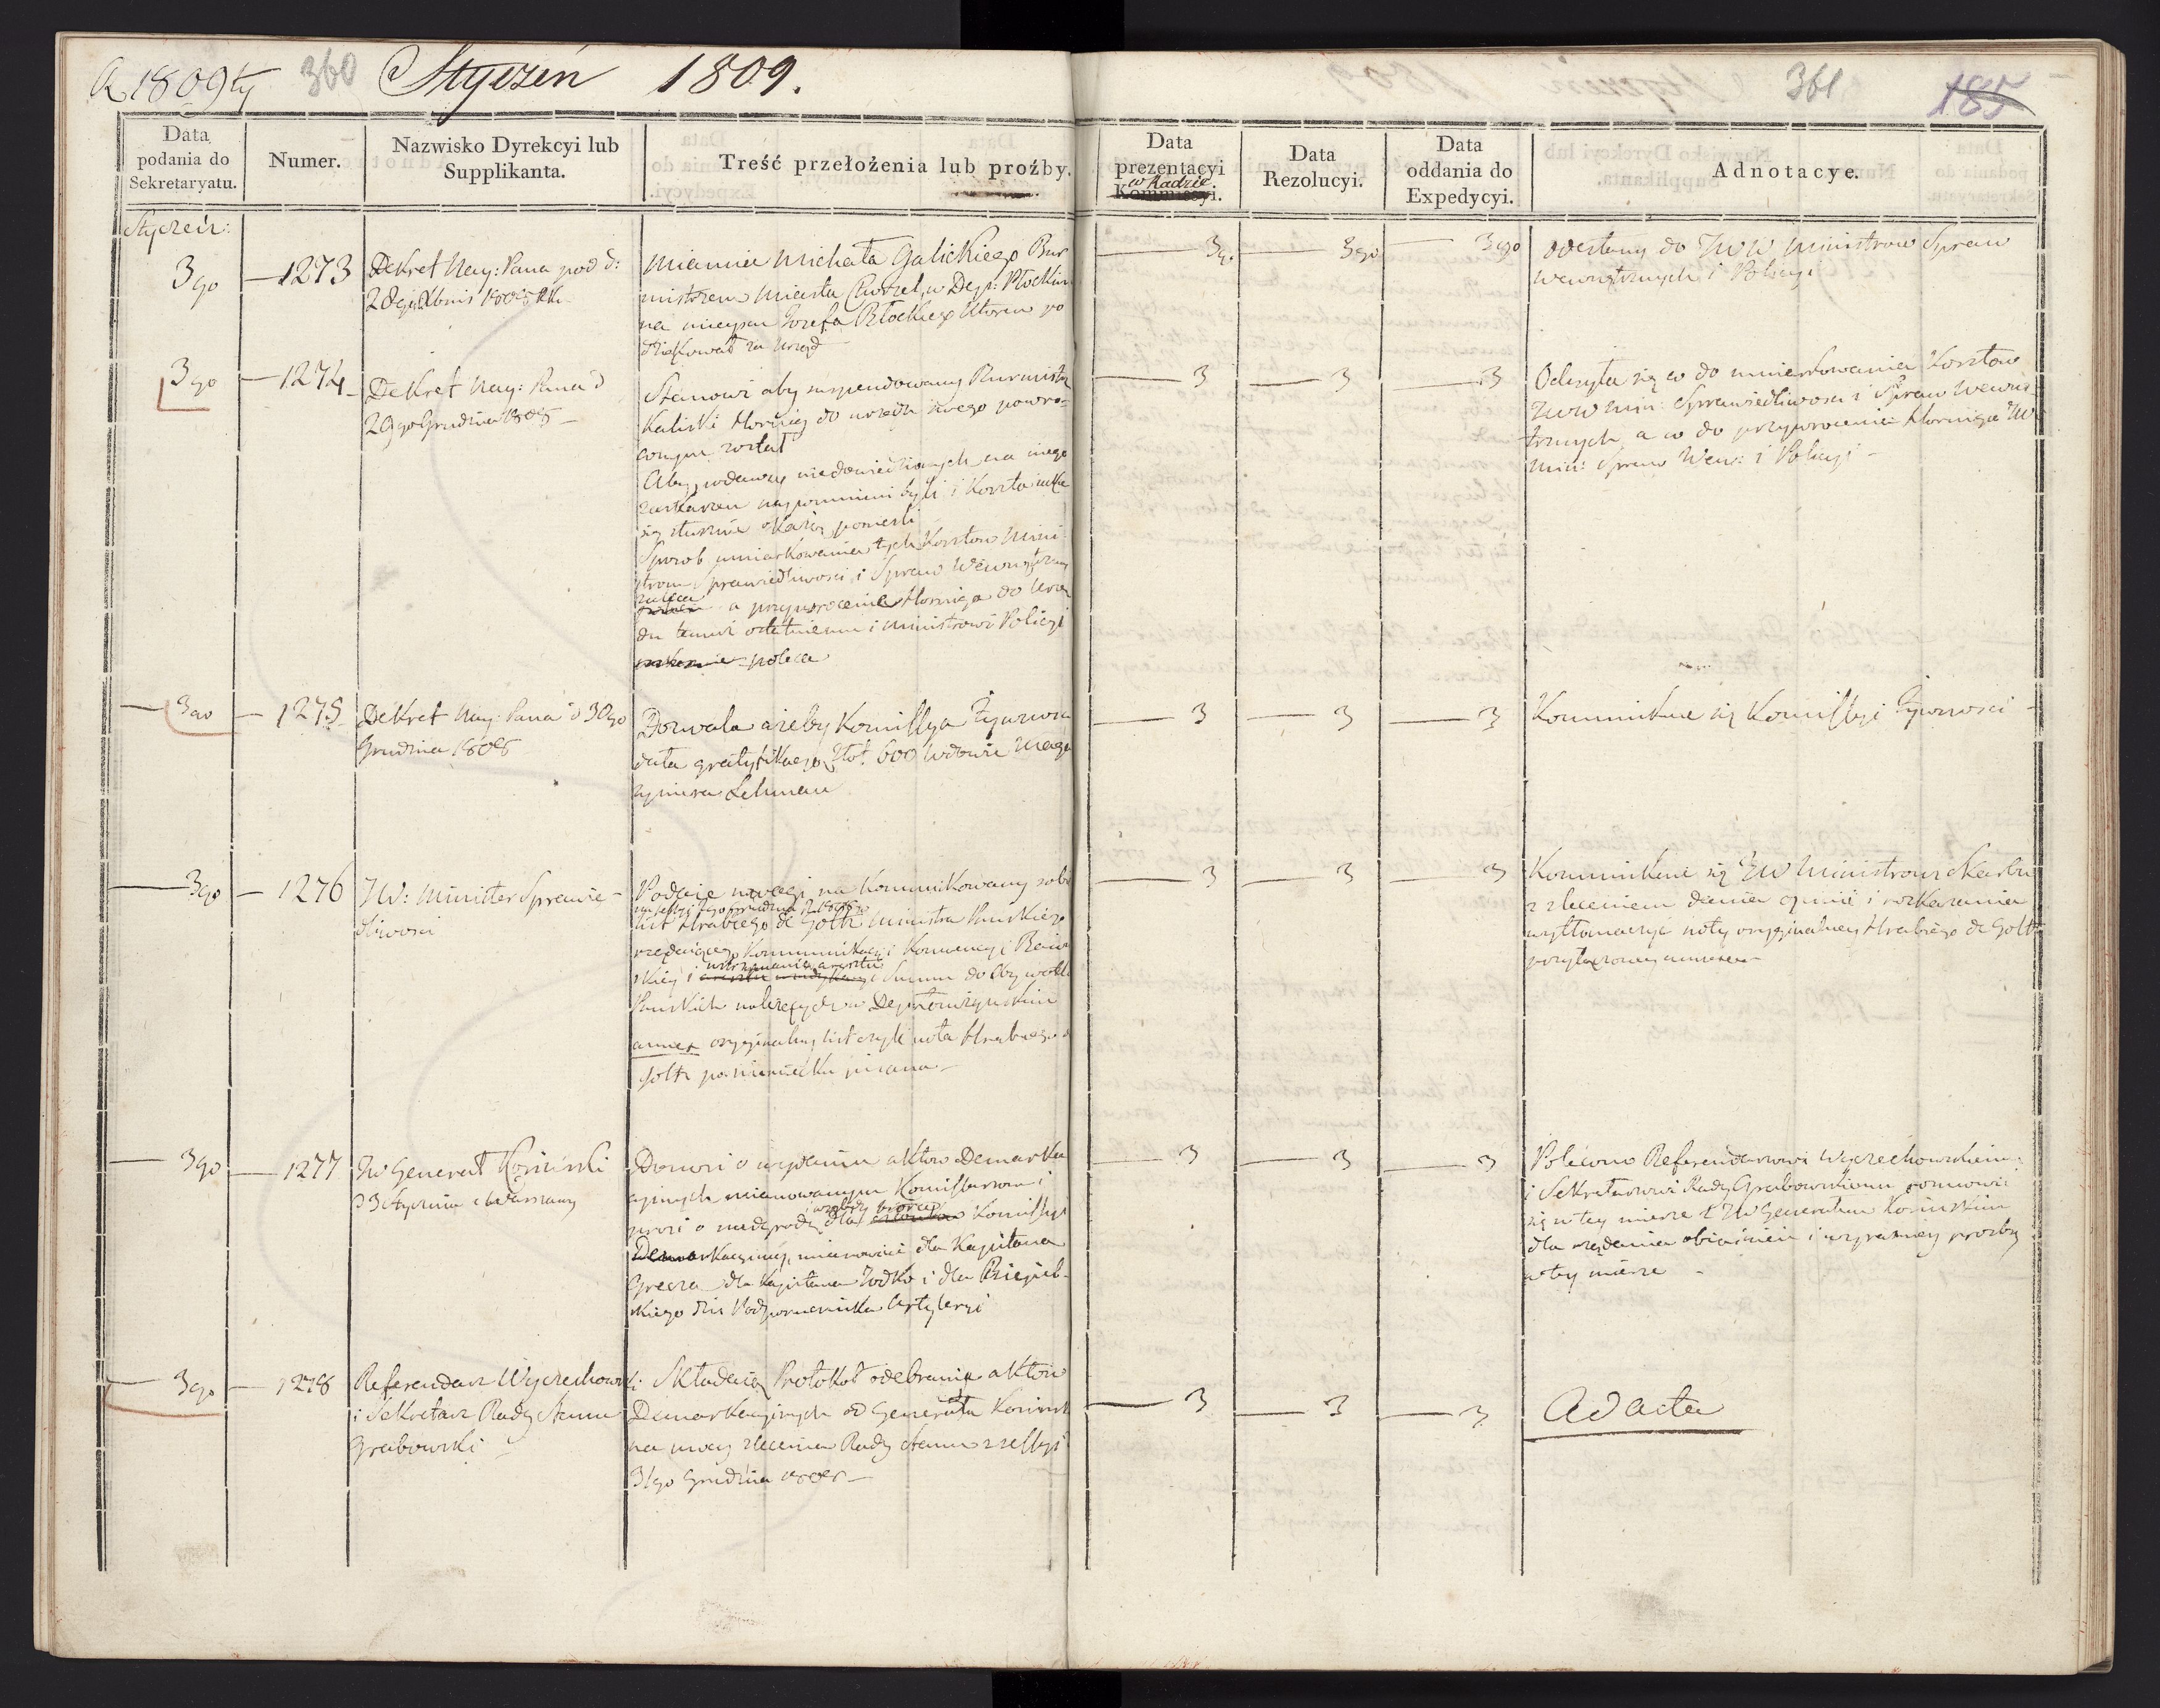 R. 1809ty 360 Styczeń 1809.
361 185
Data podania do Sekretaryatu.
Numer.
Nazwisko Dyrekcyi lub Supplikanta.
Treść przełożenia lub proźby.
Data prezentacyi w Radzie Kommissyi.
Data Rezolucyi.
Data oddania do Expedycyi.
Adnotacye.
Styczeń:
3go 1273 Dekret Nay: Pana pod d:
28go Xbris 1808 Rk
Mianuie Michała Galickiego Bur
mistrzem Miasta Chorzel, w Dep: Płockim
na mieyscu Józefa Błockiego któren po
dziękował za urząd
3go 3go 3go
Odesłany do JWW Ministrow Spraw
Wewnętrznych i Policyi
3go 1274 Dekret Nay: Pana d
29go Grudnia 1808
Stanowi aby suspendowany Burmistrz
Kaliski Hornig do urzędu swego powro-
conym został
Aby podawcy niedowiedzionych na niego
zaskarżeń napomnieni byli i koszta
się słusznie okażą ponieśli
Sposob umiarkowania tych kosztow Mini
strom Sprawiedliwosci i Spraw Wewnętrznych
zaleca a przywrocenie Horniga do Urzę
du temuż ostatniemu i Ministrowi Policyi
poleca
3 3 3
Odsyła się co do umiarkowania kosztow
JWW Min: Sprawiedliwosci i Spraw Wewnę-
trznych, a co do przywrocenia Horniga JW
Min: Spraw Wew: i Policyi
3go 1275 Dekret Nay: Pana d 30go
Grudnia 1808
Dozwala ażeby Komissya Żywnosci
dała gratyfikacyą Złot. 600 Wdowie Maga
zyniera Lehman
3 3 3
Kommunikuie się Komissyi Żywnosci
3go 1276 JW: Minister Sprawie-
dliwosci
Podaie uwagi na kommunikowany sobie
na sessyi Grudnia R. 1808
list Hrabiego de Goltz Ministra Pruskiego
względem Kommunikacyi Konwencyi Baion
skiey i wstrzymania aresztu Summ do Obywateli
Pruskich należących w Dep: Łomżyńskim
annex oryginalny list czyli nota Hrabiego de
Goltz po niemiecku pisana
3 3 3
Kommunikuie się JW Ministrowi Skarbu
z zleceniem dania opinii i rozkazania
wytłomaczyć noty oryginalney Hrabiego de Goltz
3go 1277 JW Generał Kosinski
d 3 Stycznia z Warszawy
Donosi o wydaniu aktow Demarka
cyinych mianowanym Komissarzom i
prosi o nadgrodę dla członkow Komissyi
Demarkacyiney, mianowicie dla Kapitana
Gresza dla Kapitana Jodko i dla
skiego Podporucznika Artyleryi
3 3 3
Polecono Referendarzowi Wyczechowskiemu
i Sekretarzowi Rady Grabowskiemu rozmowić
się w tey mierze z JW Generałem Kosinskim
dla żądania obiaśnień i wyraźney prozby
w tey mierze
3go 1278 Referendarz Wyczechowski
i Sekretarz Rady Stanu
Grabowski
Składaią Protokoł odebranych aktow
Demarkacyinych od Generała Kosinsk
na mocy zlecenia Rady Stanu z sessyi
31go Grudnia 1808
3 3 3
Ad acta